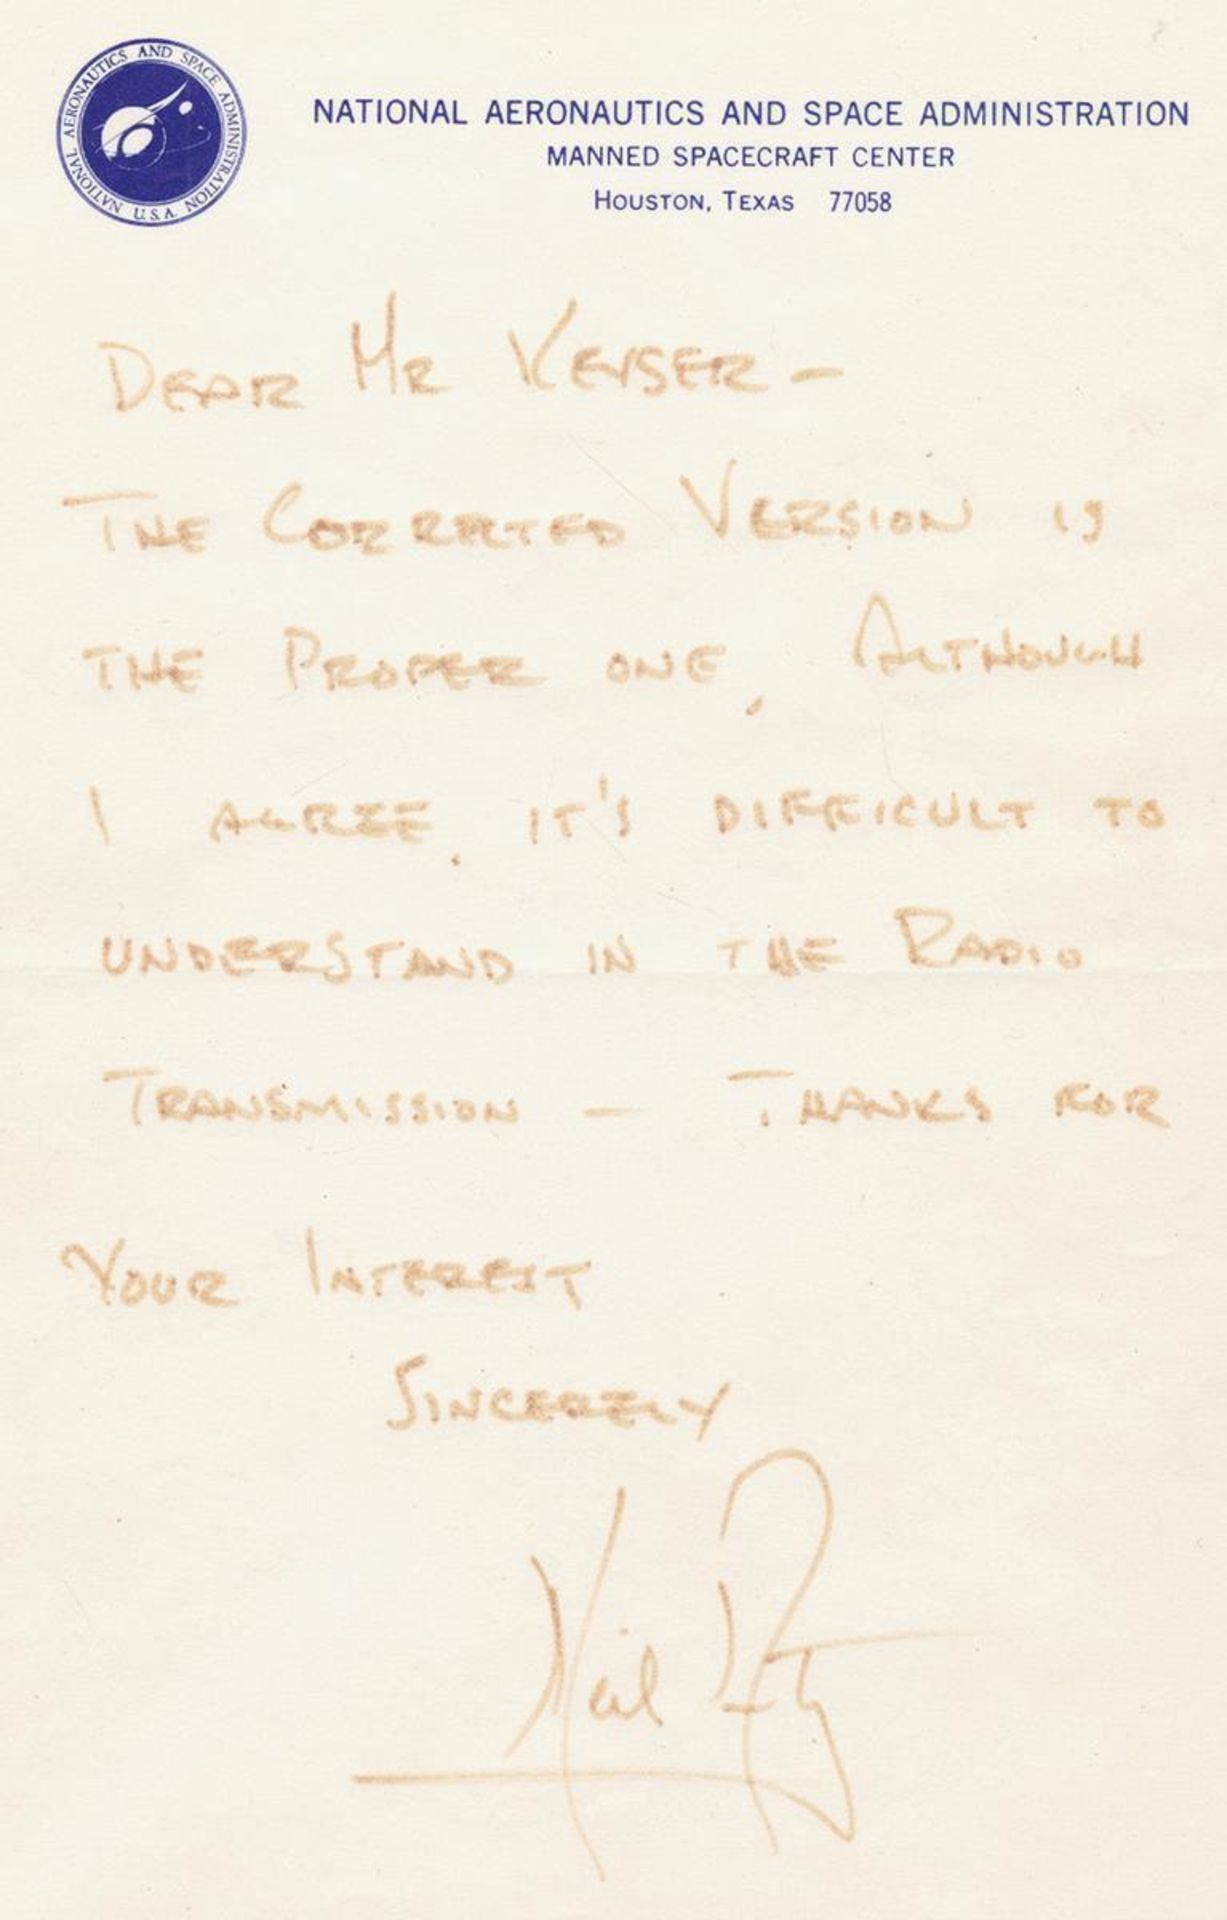 NATIONAL AERONAUTICS AND SPACE ADMINISTRATION U.S.A.
NATIONAL AERONAUTICS AND SPACE ADMINISTRATION
MANNED SPACECRAFT CENTER
HOUSTON, TEXAS 77058
DEAR MR KEYSER –
THE CORRECTED VERSION IS
THE PROPER ONE, ALTHOUGH
I AGREE, IT'S DIFFICULT TO
UNDERSTAND IN THE RADIO
TRANSMISSION – THANKS FOR
YOUR INTEREST
SINCERELY
Neil